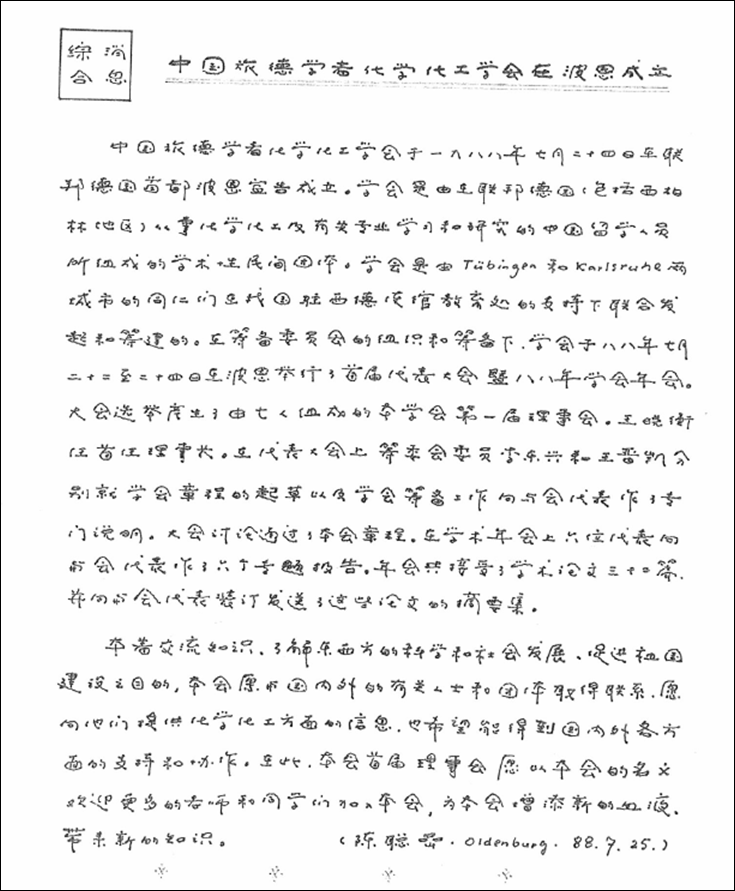 综合消息
中国旅德学者化学化工学会在波恩成立
中国旅德学者化学化工学会于一九八八年七月二十四日在联
邦德国首都波恩宣告成立。学会是由在联邦德国(包括西柏
林地区)从事化学化工及有关专业学习和研究的中国留学人员
所组成的学术性民间团体。学会是由Tübingen和Karlsruhe两
城市的同仁们在我国驻西德使馆教育处的支持下联合发
起和筹建的。在筹备委员会的组织和筹备下,学会于八八年七月
二十二至二十四日在波恩举行了首届代表大会暨八八年学会年会。
大会选举产生了由七人组成的本学会第一届理事会。王晓衡
任首任理事长。在代表大会上筹委会委员李乐兴和王晋凯分
别就学会章程的起草以及学会筹备工作向与会代表作了专
门说明。大会讨论通过了本会章程。在学术年会上六位代表向
与会代表作了六个专题报告。年会共接受了学术论文三十二篇,
并向与会代表装订发送了这些论文的摘要集。
本着交流知识、了解东西方的科学和社会发展、促进祖国
建设之目的,本会愿与国内外的有关人士和团体取得联系,愿
向他们提供化学化工方面的信息,也希望能得到国内外各方
面的支持和协作。在此,本会首届理事会愿以本会的名义
欢迎更多的老师和同学们加入本会,为本会增添新的血液、
带来新的知识。 (陈聪 · Oldenburg · 88.7.25.)